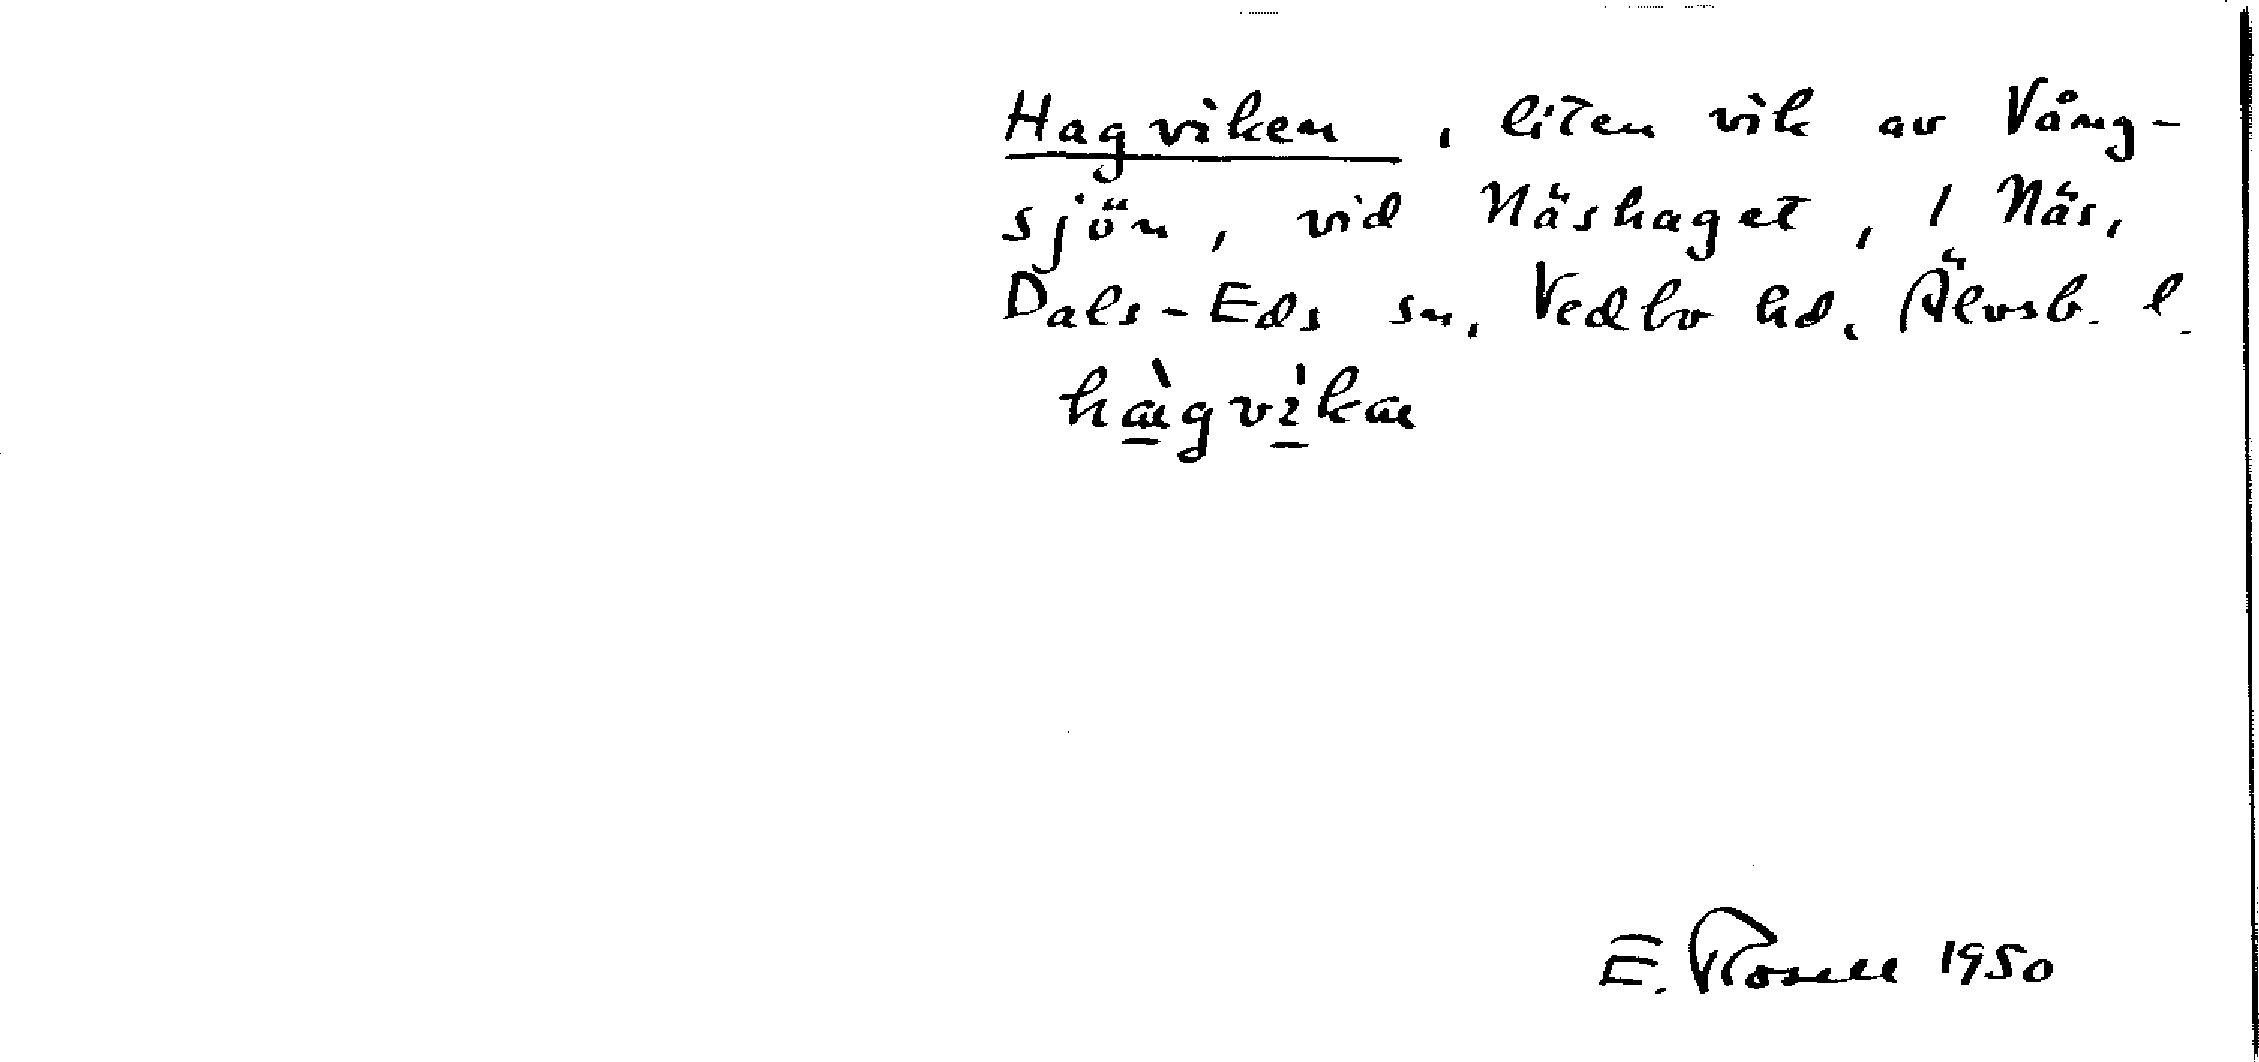 Hagviken, liten vik av Vång-
sjön, vid Näshaget, 1 Näs,
Dals-Eds sn, Vedbo hd, Älvsb. l.
hàgvìka
E. Rosell 1950